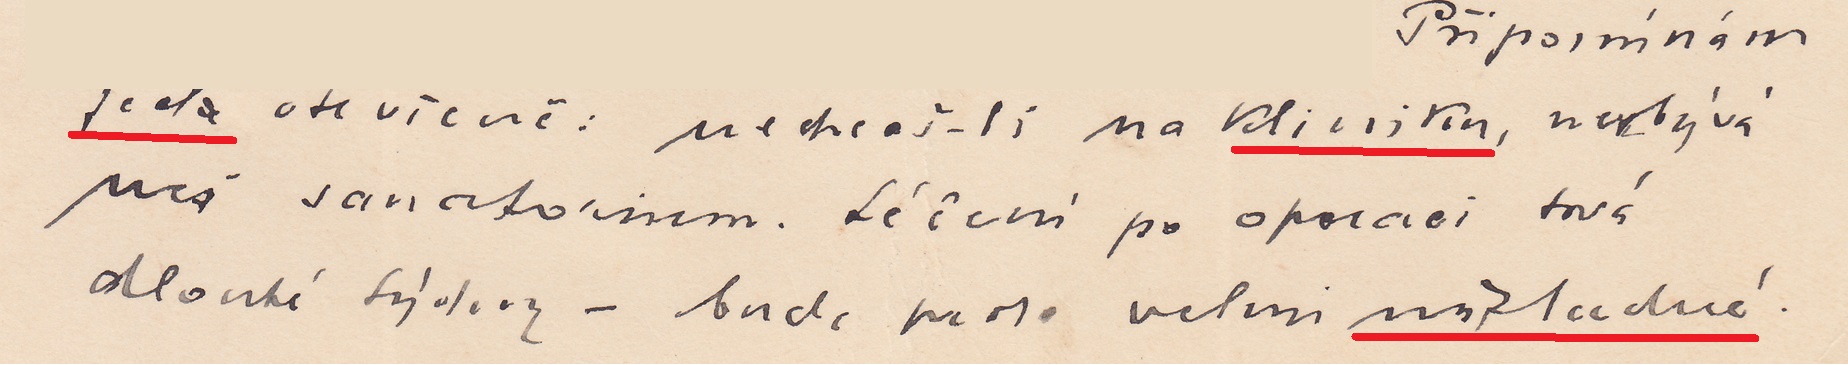 Připomínám
jedn otevřeně: nechceš-li na kliniku, nezbývá
než sanatorium. Léčení po operaci trvá
dlouhé týdny – bude proto velmi nákladné.